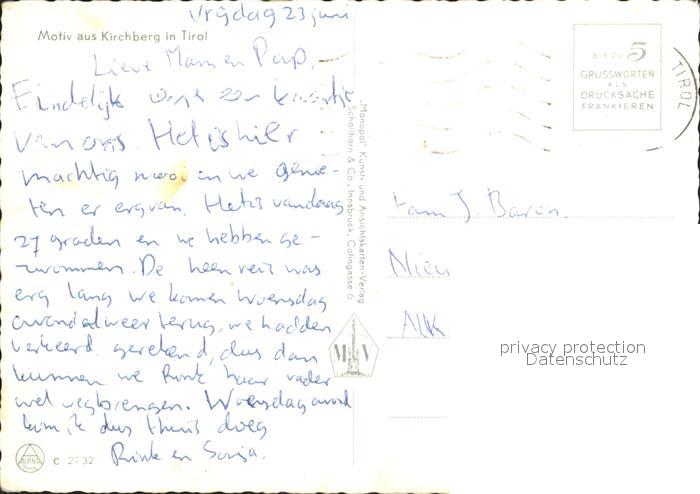 Vrijdag 23 juni
Motiv aus Kirchberg in Tirol
Lieve Mam en Pap,
Eindelijk weer een kaartje
van ons. Het is hier
machtig mooi en we genie-
ten er erg van. Het is vandaag
27 graden en we hebben ge-
zwommen. De heenreis was
erg lang we komen Woensdag
avond al weer terug, we hadden
verkeerd gerekend, dus dan
kunnen we Rink haar vader
wel wegbrengen. Woensdagavond
kom ik dus thuis
Rink en Sonja.
C 2732
"Monopol" Kunst- und Ansichtskarten-Verlag
Schöllhorn & Co., Innsbruck, Colingasse 6
M V
BIS ZU 5
GRUSSWORTEN
ALS
DRUCKSACHE
FRANKIEREN
TIROL
Fam J. Baron.
Nieu
Alk
privacy protection
Datenschutz